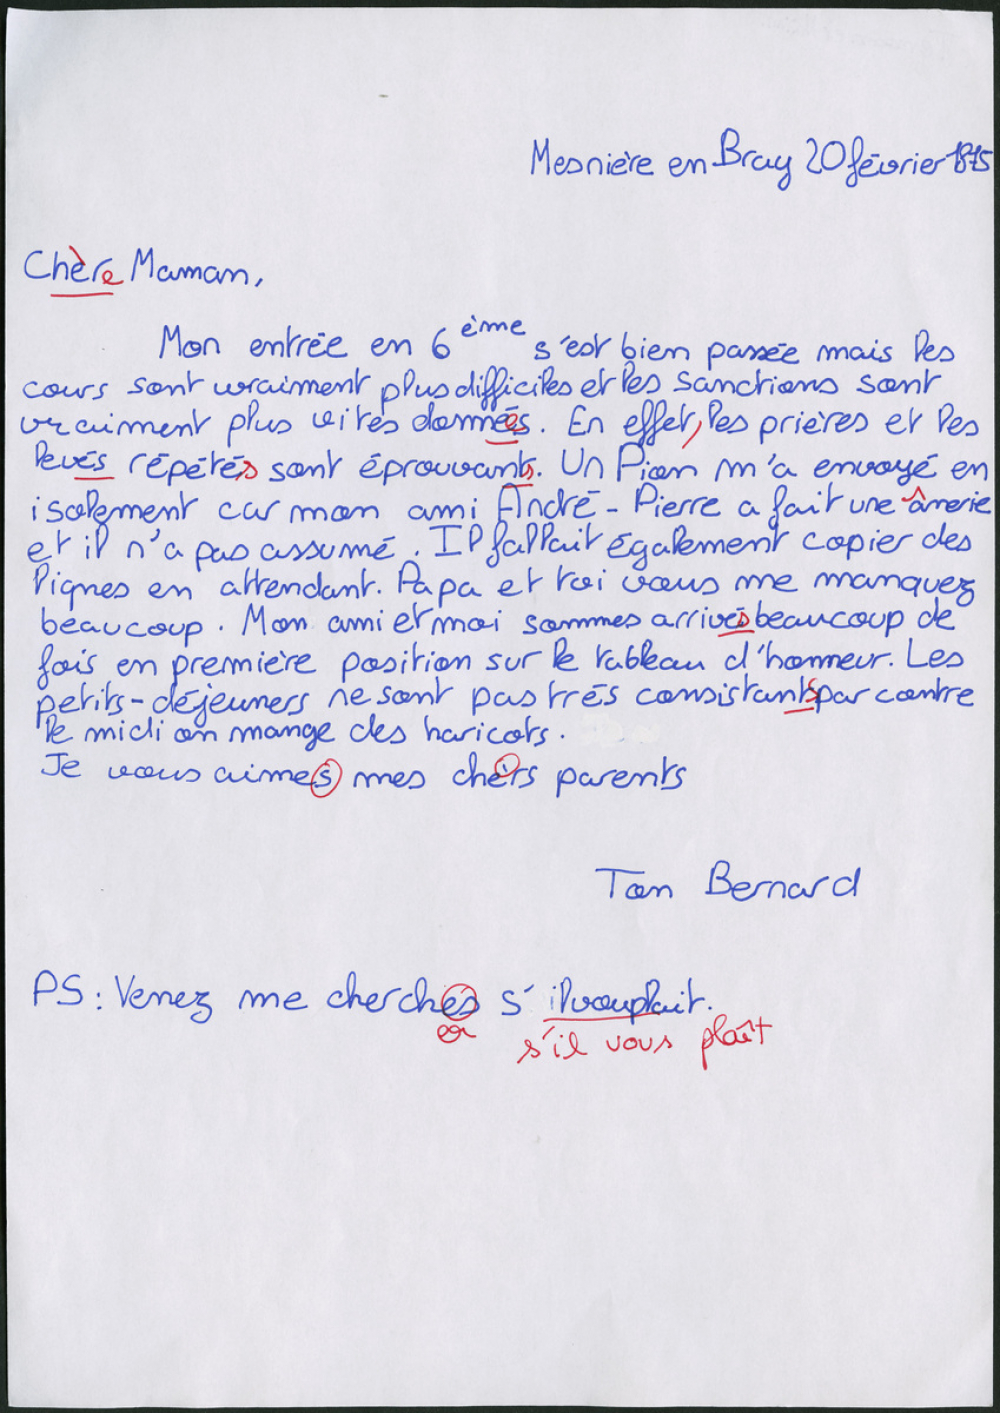 Mesnière en Bray 20 février 1875
Chère Maman,
Mon entrée en 6 ème s'est bien passée mais les
cours sont vraiment plus difficiles et les sanctions sont
vraiment plus vites données. En effet, les prières et les
levés répétés sont éprouvants. Un Pion m'a envoyé en
isolement car mon ami André-Pierre a fait une ânerie
et il n'a pas assumé. Il fallait également copier des
lignes en attendant. Papa et toi vous me manquez
beaucoup. Mon ami et moi sommes arrivés beaucoup de
fois en première position sur le tableau d'honneur. Les
petits-déjeuners ne sont pas trés consistants par contre
le midi on mange des haricots.
Je vous aimes mes chèrs parents
Tom Bernard
PS: Venez me cherchés s'ilvouplait.
er s'il vous plaît